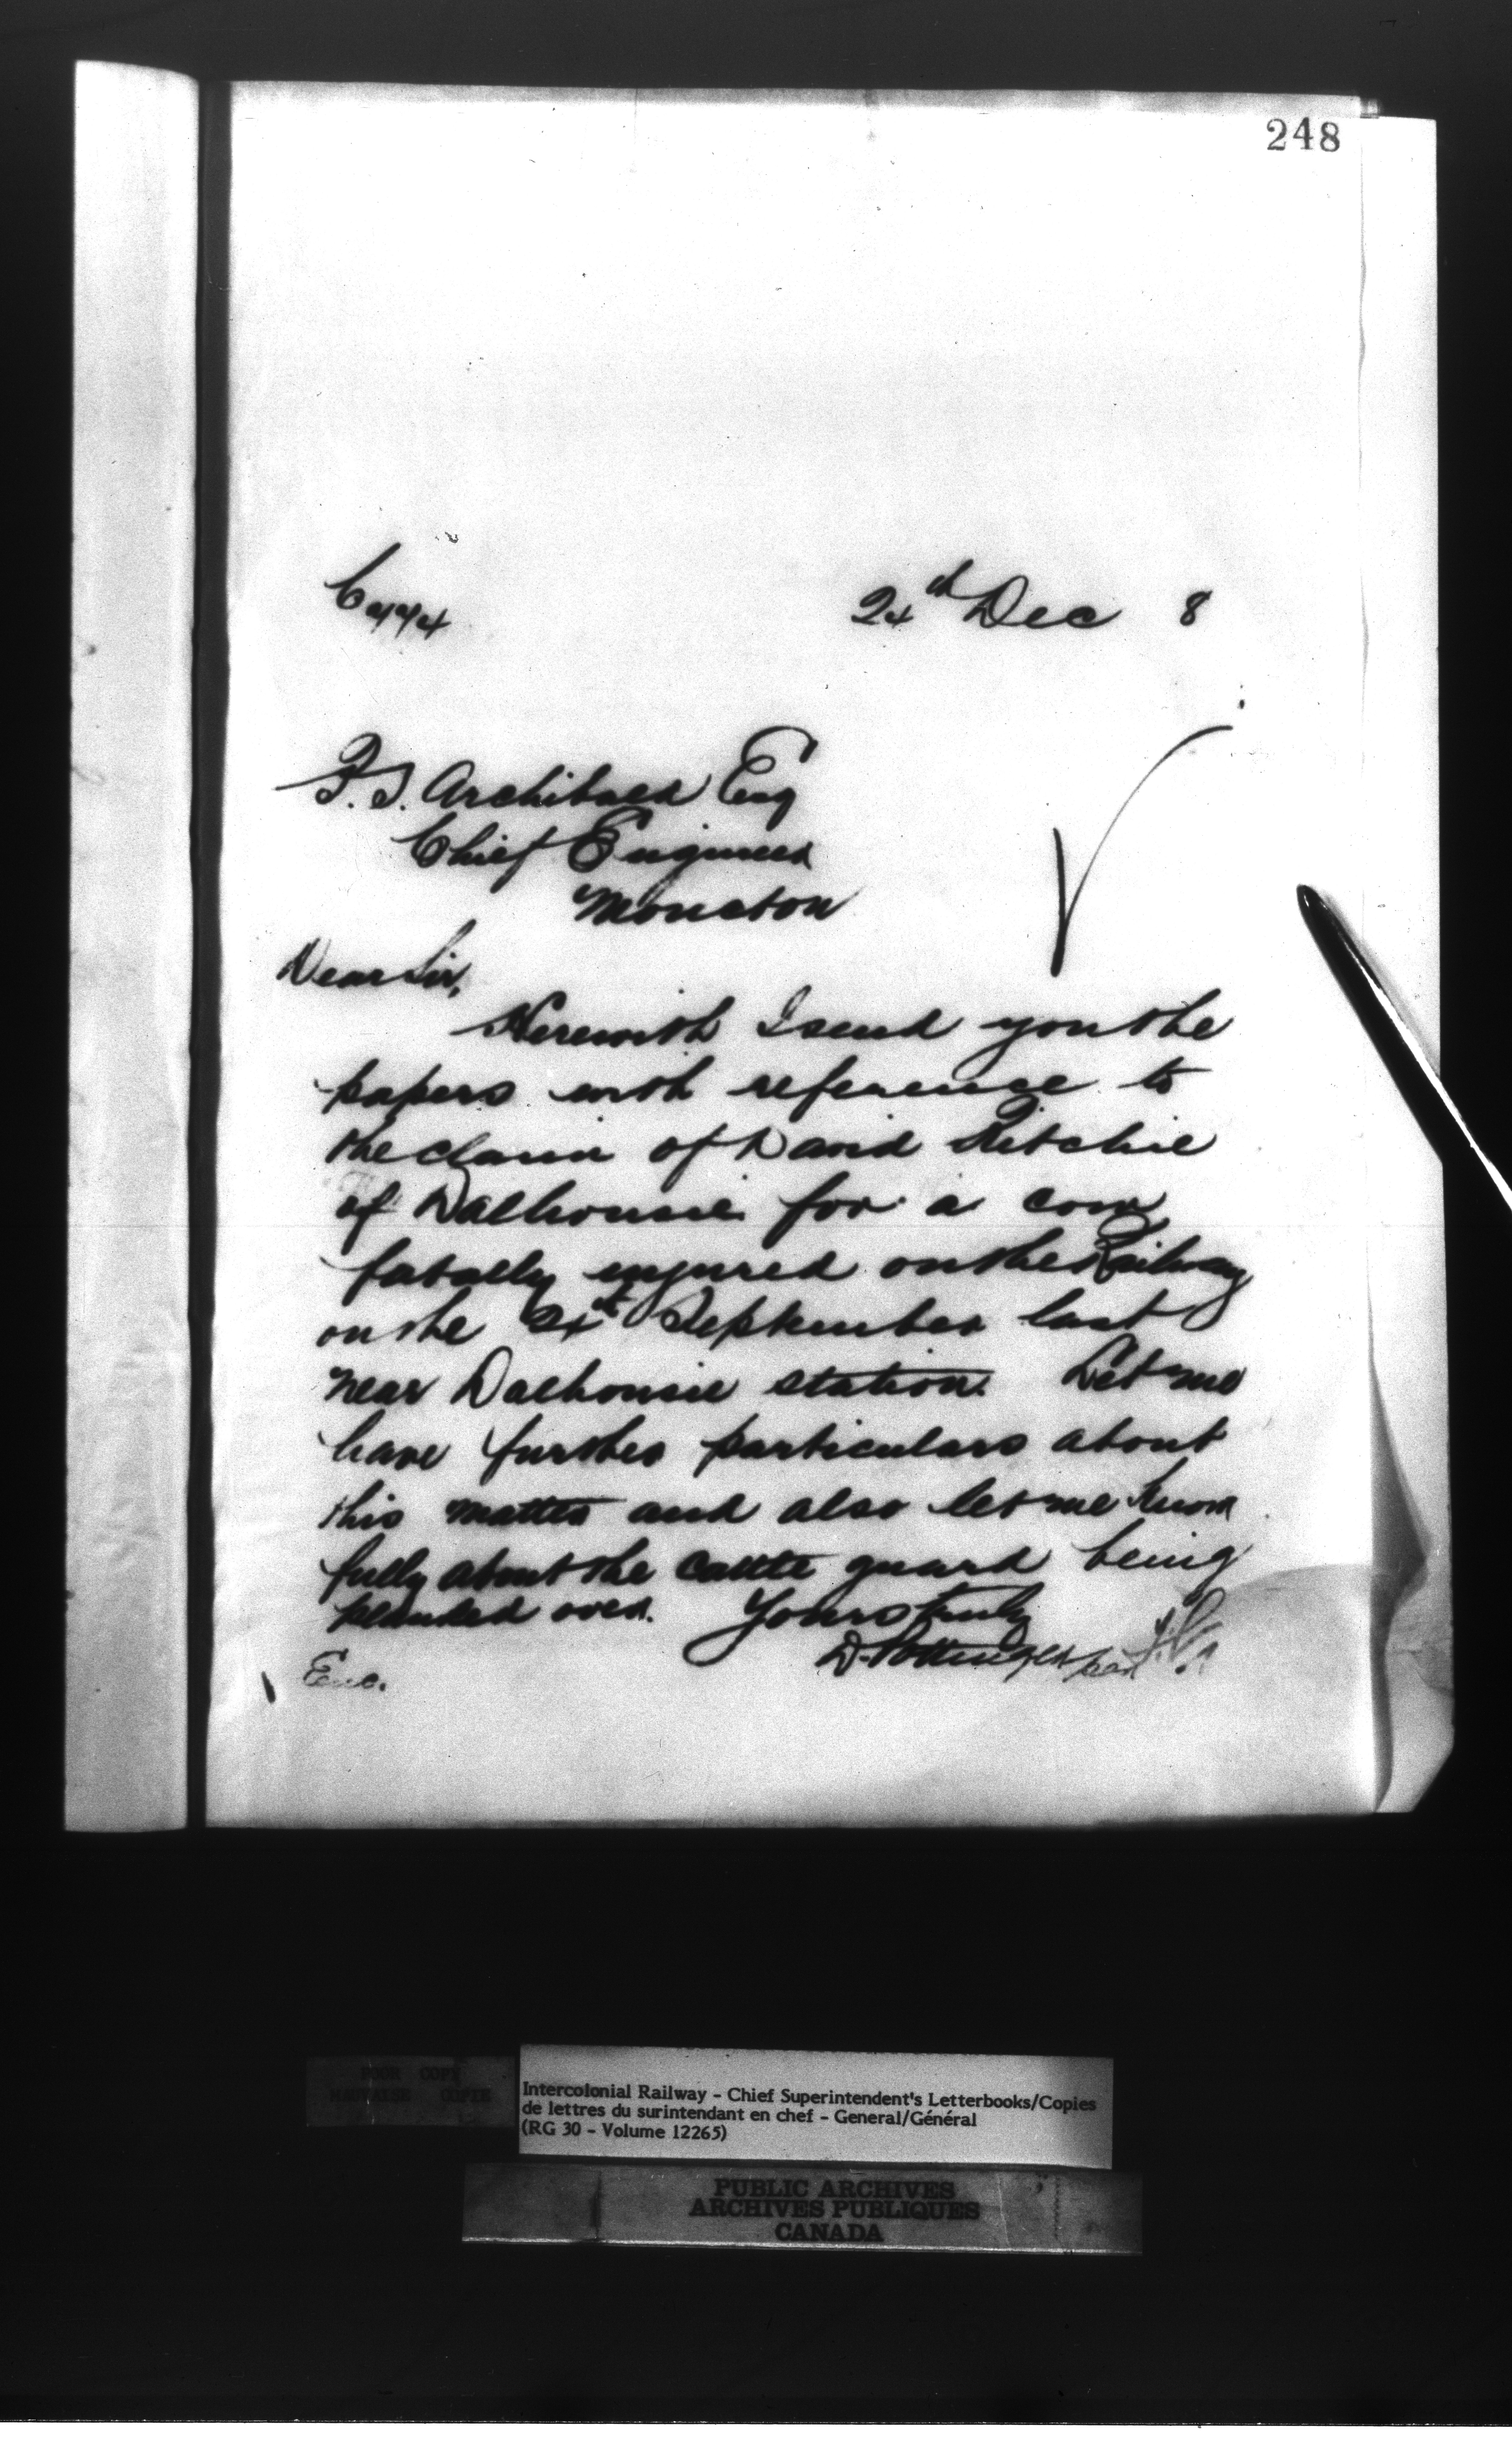 248
24th Dec 8
P.S. Archibald Esq
Chief Engineer
Moncton
Dear Sir,
Herewith I send you the
papers with reference to
the claim of David Ritchie
of Dalhousie for a cow
fatally injured on the Railway
on the September last
near Dalhousie station. Let me
have further particulars about
this matter and also let me know
fully about the cattle guard being
planked over. Yours truly
D. Pottinger per
Enc.
POOR COPY
MAUVAISE COPIE
Intercolonial Railway - Chief Superintendent's Letterbooks/Copies
de lettres du surintendant en chef - General/Général
(RG 30 - Volume 12265)
PUBLIC ARCHIVES
ARCHIVES PUBLIQUES
CANADA